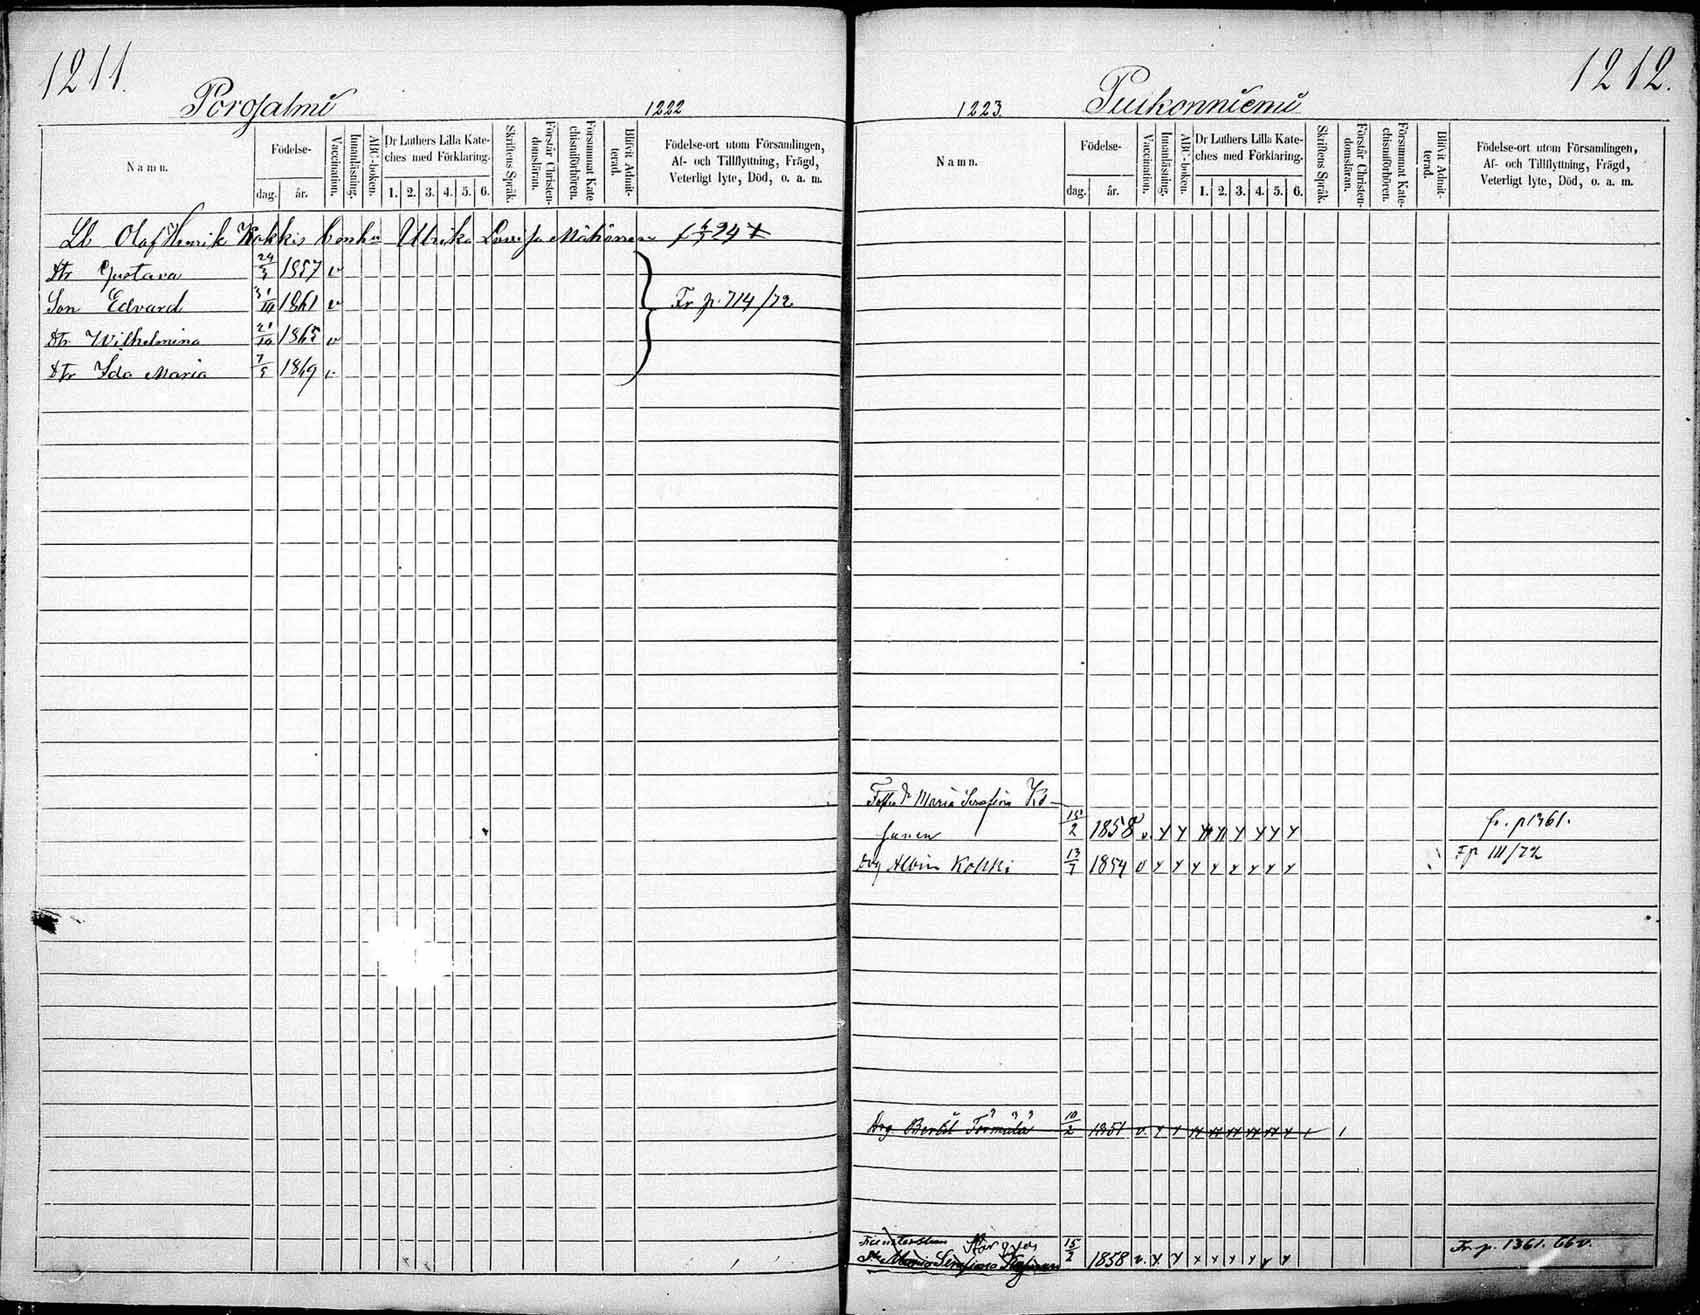 1211.
Porosalmi
1222
Namn.
Födelse-
dag. år.
Vaccination.
Innanläsning.
ABC-boken.
Dr Luthers Lilla Kate-
ches med Förklaring.
1. 2. 3. 4. 5. 6.
Skriftens Språk.
Förstår Christen-
domsläran.
Försummat Kate
chismiförhören.
Blifvit Admit-
terad.
Födelse-ort utom Församlingen,
Af- och Tillflyttning, Frägd,
Veterligt lyte, Död, o. a. m.
Olof Henrik Kokkis Ulrika Lovisa
Dtr Gustava 24/3 1857 v
Son Edvard 31/10 1861 v
Fr p. 714/72
Dtr Wilhelmina 21/10 1865 v
Dtr Ida Maria 7/5 1869 v
1212.
1223.
Puikonniemi
Namn.
Födelse-
dag. år.
Vaccination.
Innanläsning.
ABC-boken.
Dr Luthers Lilla Kate-
ches med Förklaring.
1. 2. 3. 4. 5. 6.
Skriftens Språk.
Förstår Christen-
domsläran.
Försummat Kate-
chismiförhören.
Blifvit Admit-
terad.
Födelse-ort utom Församlingen,
Af- och Tillflyttning, Frägd,
Veterligt lyte, Död, o. a. m.
Maria Serafina
15/2 1858 v. fr. p 1361.
Drg Albin Kokki 13/7 1854 v Fp 111/72
Drg Törmälä 10/2 1851 v.
Maria Serafina 15/2 1858 v. Fr. p. 1361.